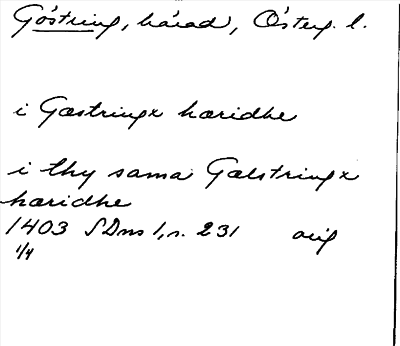 Göstring, härad, Österg. l.
i Gæstringx hæridhe
i thy sama Gælstringx
hæridhe
1403 SDns 1, n. 231 orig
1/4